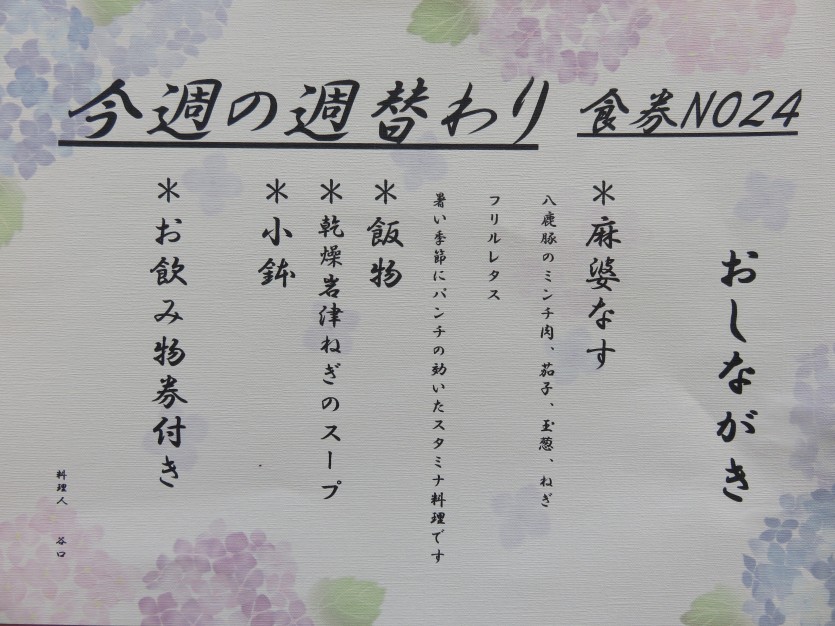 今週の週替わり 食券NO24
おしながき
＊麻婆なす
八鹿豚のミンチ肉、茄子、玉葱、ねぎ
フリルレタス
暑い季節にパンチの効いたスタミナ料理です
＊飯物
＊乾燥岩津ねぎのスープ
＊小鉢
＊お飲み物券付き
料理人　谷口